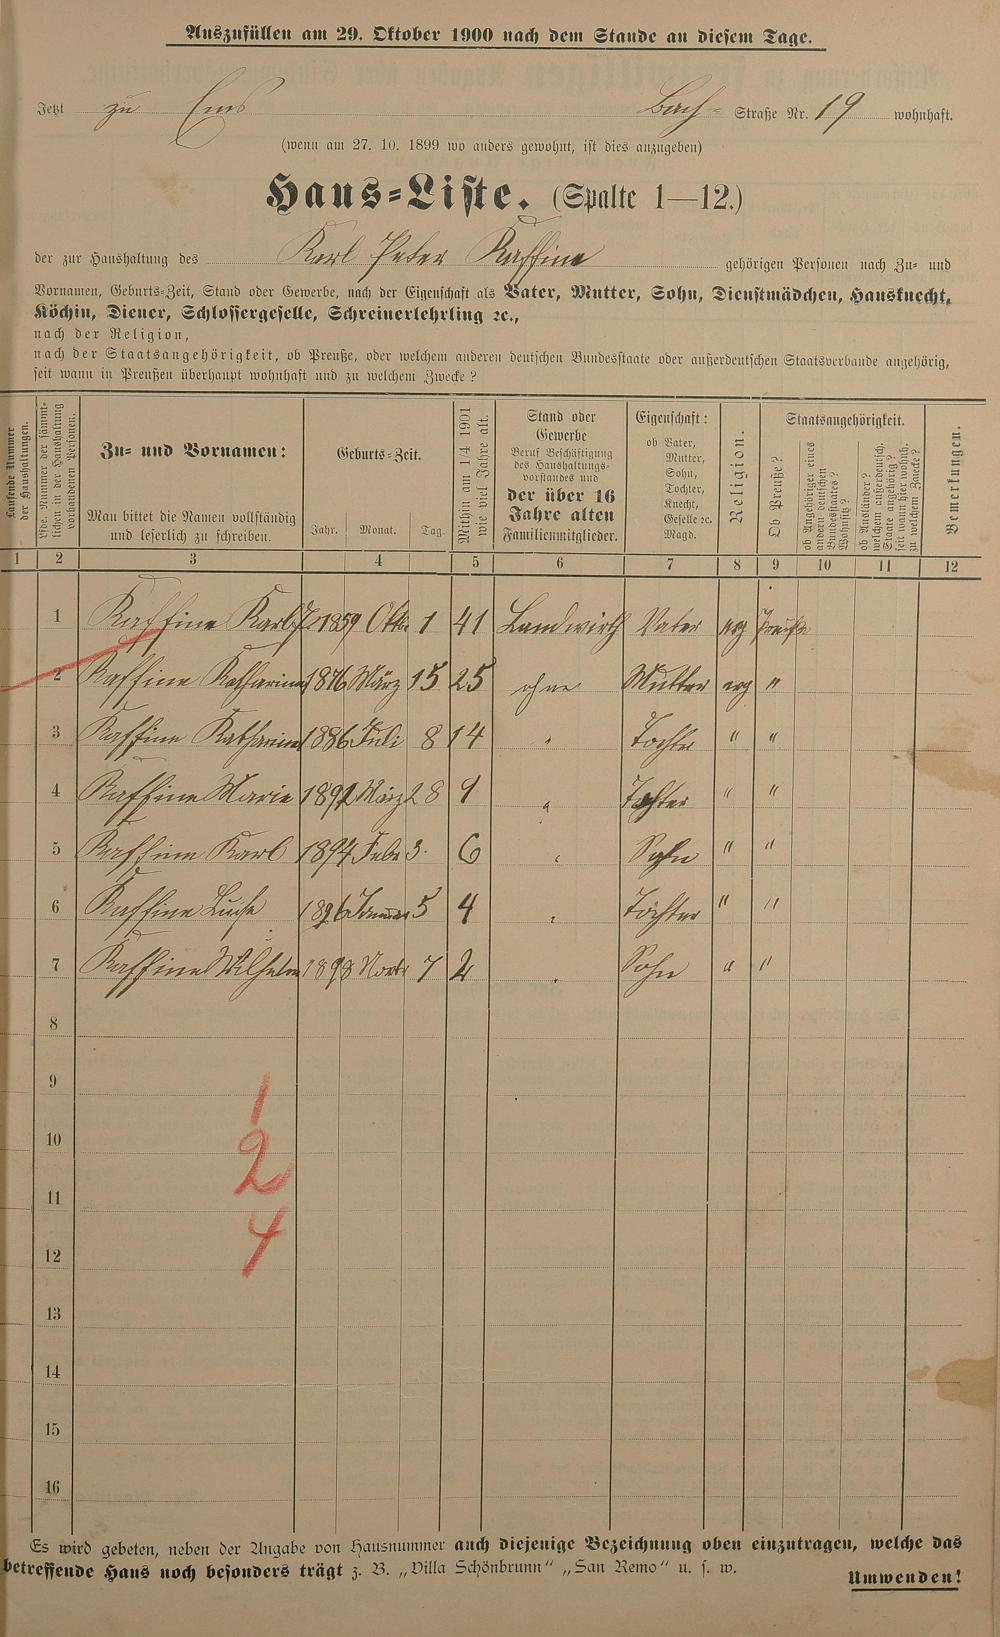 Auszufüllen am 29. Oktober 1900 nach dem Stande an diesem Tage.
Jetzt zu Ems Bach- Straße Nr. 19 wohnhaft.
(wenn am 27. 10. 1899 wo anders gewohnt, ist dies anzugeben)
Haus-Liste. (Spalte 1—12.)
der zur Haushaltung des Karl Peter Kaffine gehörigen Personen nach Zu- und
Vornamen, Geburts-Zeit, Stand oder Gewerbe, nach der Eigenschaft als Vater, Mutter, Sohn, Dienstmädchen, Hausknecht,
Köchin, Diener, Schlossergeselle, Schreinerlehrling ꝛc.,
nach der Religion,
nach der Staatsangehörigkeit, ob Preuße, oder welchem anderen deutschen Bundesstaate oder außerdeutschen Staatsverbande angehörig,
seit wann in Preußen überhaupt wohnhaft und zu welchem Zwecke?
Laufende Nummer
der Haushaltungen.
Lfde. Nummer der sämmt-
lichen in der Haushaltung
vorhandenen Personen.
Zu- und Vornamen:
Man bittet die Namen vollständig
und leserlich zu schreiben.
Geburts-Zeit.
Jahr. Monat. Tag.
Mithin am 1/4 1901
wie viel Jahre alt.
Stand oder
Gewerbe
Beruf Beschäftigung
des Haushaltungs-
vorstandes und
der über 16
Jahre alten
Familienmitglieder.
Eigenschaft:
ob Vater,
Mutter,
Sohn,
Tochter,
Knecht,
Geselle ꝛc.
Magd.
Religion.
Staatsangehörigkeit.
Ob Preuße?
ob Angehöriger eines
andern deutschen
Bundesstaates?
Wohnsitz?
ob Ausländer?
welchem außerdeutsch.
Staate angehörig?
seit wann hier wohnh.
zu welchem Zwecke?
Bemerkungen.
1 2 3 4 5 6 7 8 9 10 11 12
1 Kaffine Karl P. 1859 Oktbr 1 41 Landwirth Vater evg Preuße
2 Kaffine Katharina 1876 März 15 25 ohne Mutter evg "
3 Kaffine Katharina 1886 Juli 8 14 " Tochter " "
4 Kaffine Marie 1892 März 28 9 " Tochter " "
5 Kaffine Karl 1894 Febr 3. 6 " Sohn " "
6 Kaffine Luise 1896 Januar 5 4 " Tochter " "
7 Kaffine Wilhelm 1898 Novbr 7 2 " Sohn " "
8
9
10
11
12
13
14
15
16
1
2
4
Es wird gebeten, neben der Angabe von Hausnummer auch diejenige Bezeichnung oben einzutragen, welche das
betreffende Haus noch besonders trägt z. B. „Villa Schönbrunn“ „San Remo“ u. s. w.
Umwenden!